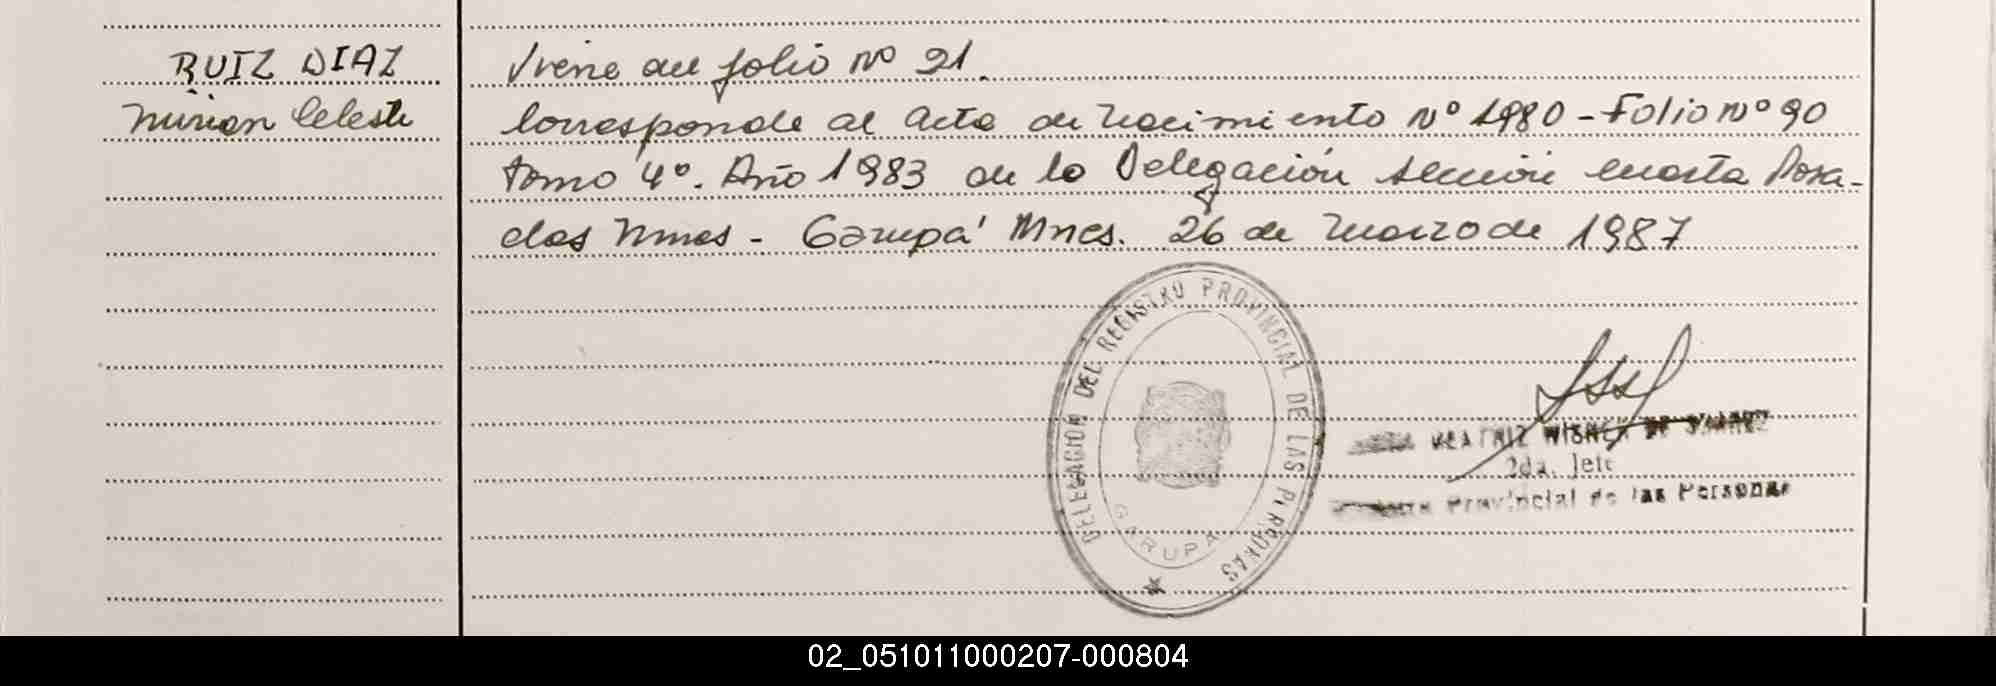 RUIZ DIAZ
Mirian Celeste
Viene del folio Nº 21.
Corresponde al Acta de Nacimiento Nº 1980 - Folio Nº 90
tomo 4º. Año 1983 de la Delegación sección cuarta Posa-
das Mnes - Garupá Mnes. 26 de Marzo de 1987
DELEGACION DEL REGISTRO PROVINCIAL DE LAS PERSONAS
GARUPA
BEATRIZ WISNER DE
2da. Jefe
Provincial de las Personas
02_051011000207-000804